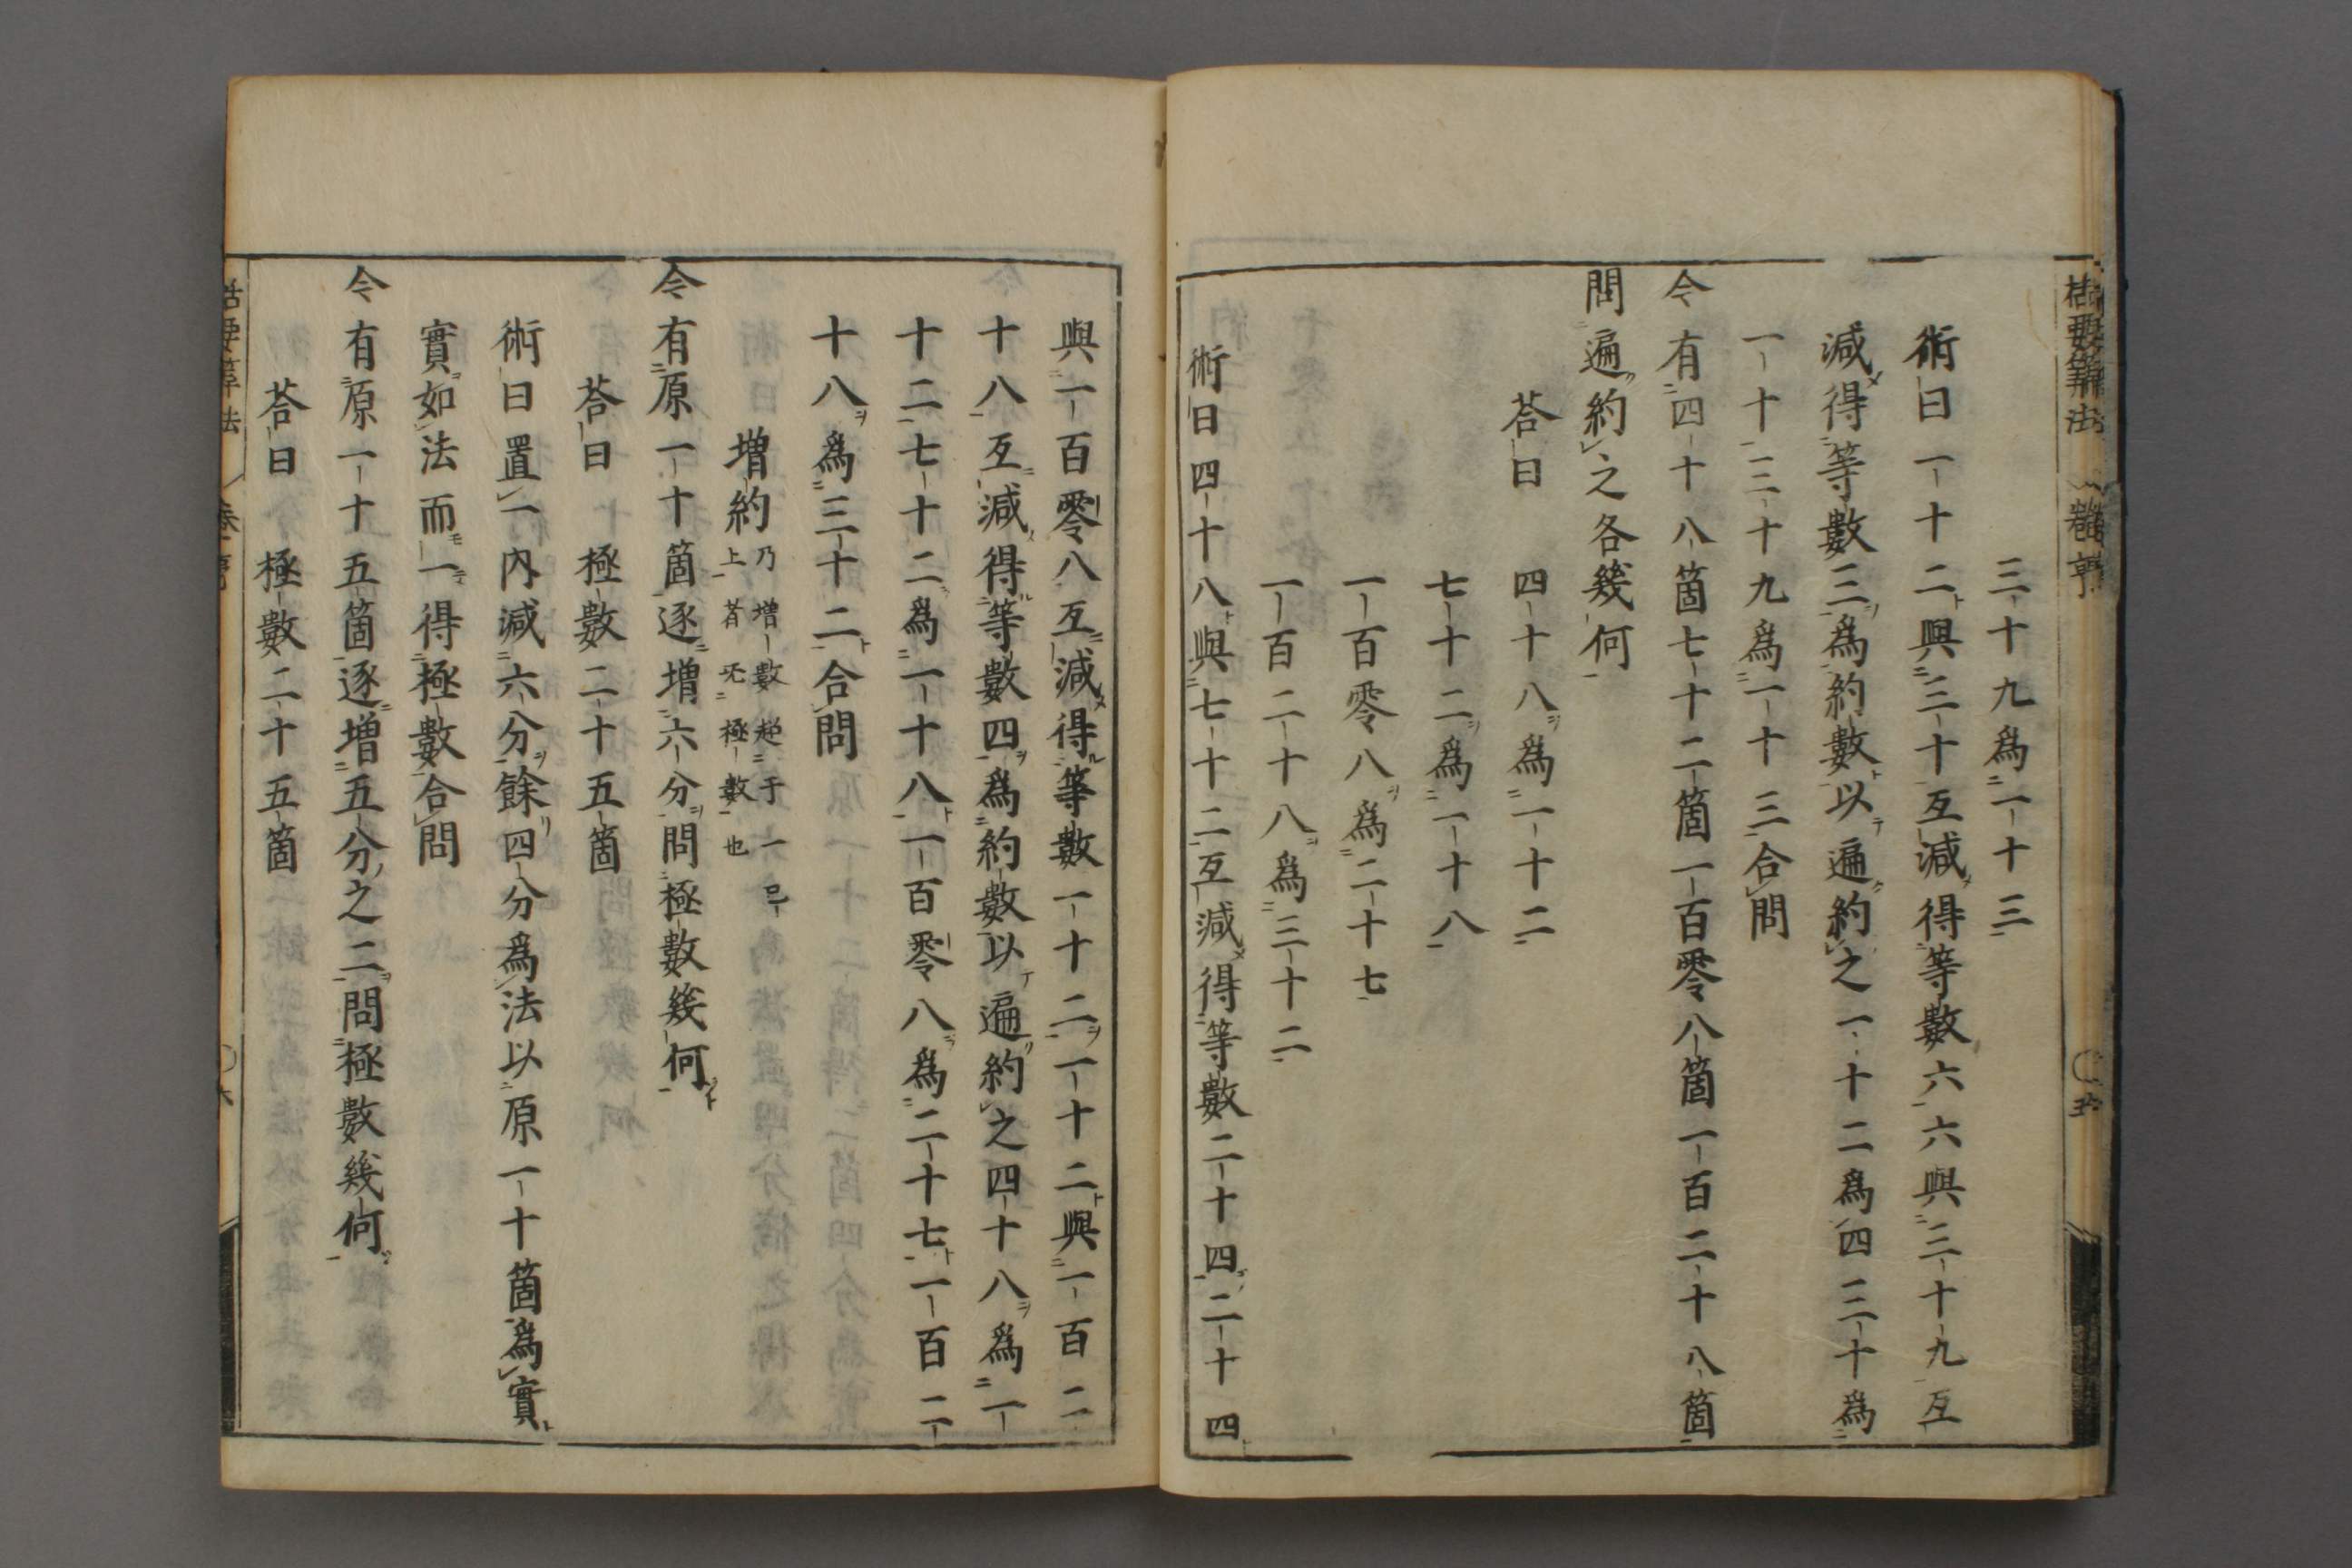 三十九爲一十三
術曰一十二與三十互減得等數六六與三十九互
減得等數三爲約數以遍約之一十二爲四三十爲
一十三十九爲一十三合問
令有四十八箇七十二箇一百零八箇一百二十八箇
問遍約之各幾何
荅曰
四十八爲一十二
七十二爲一十八
一百零八爲二十七
一百二十八爲三十二
術曰四十八與七十二互減得等數二十四二十四
與一百零八互減得等數一十二一十二與一百二
十八互減得等數四爲約數以遍約之四十八爲一
十二七十二爲一十八一百零八爲二十七一百二
十八爲三十二合問
増約
乃増數趂于一㠯
上者旡極數也
令有原一十箇逐増六分問極數幾何
荅曰極數二十五箇
術曰置一內減六分餘四分爲法以原一十箇爲實
實如法而一得極數合問
令有原一十五箇逐増五分之二問極數幾何
荅曰極數二十五箇
括要算法